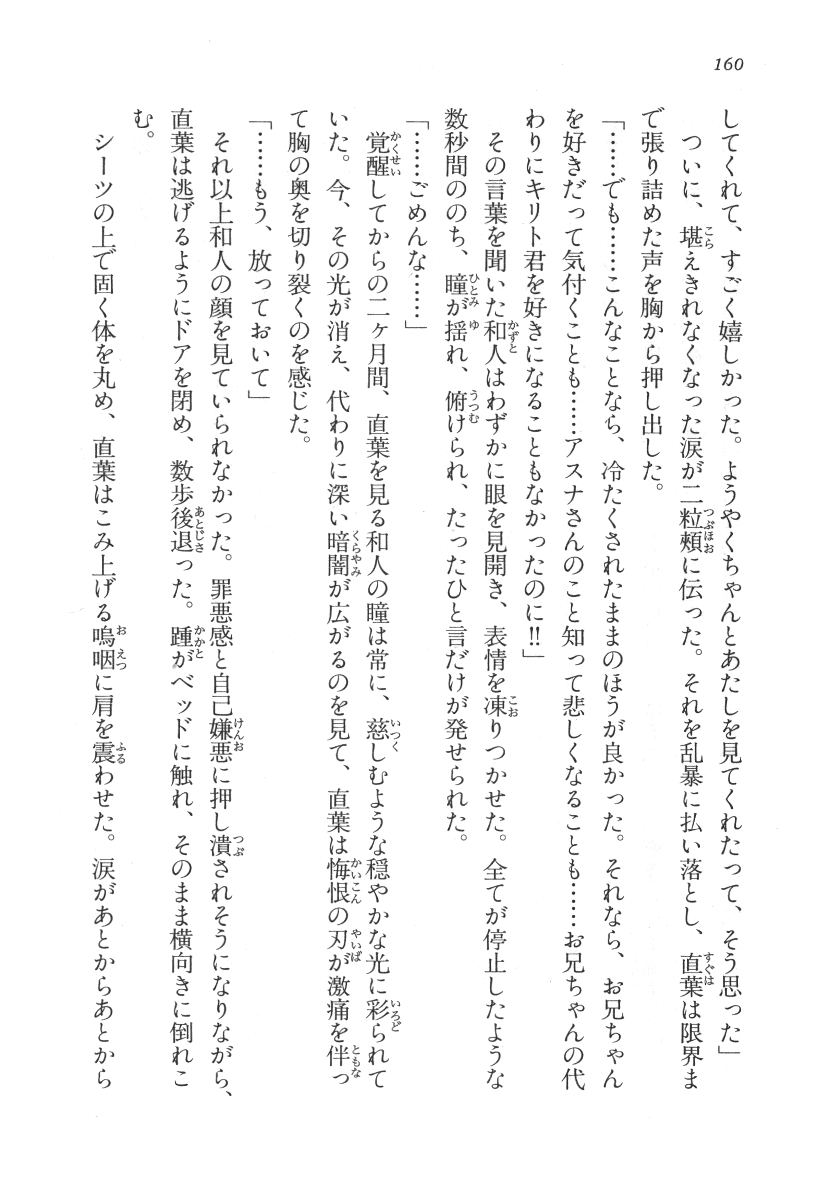 160
してくれて、すごく嬉しかった。ようやくちゃんとあたしを見てくれたって、そう思った」
ついに、堪えきれなくなった涙が二粒頬に伝った。それを乱暴に払い落とし、直葉は限界ま
で張り詰めた声を胸から押し出した。
「……でも……こんなことなら、冷たくされたままのほうが良かった。それなら、お兄ちゃん
を好きだって気付くことも……アスナさんのこと知って悲しくなることも……お兄ちゃんの代
わりにキリト君を好きになることもなかったのに!!」
その言葉を聞いた和人はわずかに眼を見開き、表情を凍りつかせた。全てが停止したような
数秒間ののち、瞳が揺れ、俯けられ、たったひと言だけが発せられた。
「……ごめんな……」
覚醒してからの二ヶ月間、直葉を見る和人の瞳は常に、慈しむような穏やかな光に彩られて
いた。今、その光が消え、代わりに深い暗闇が広がるのを見て、直葉は悔恨の刃が激痛を伴っ
て胸の奥を切り裂くのを感じた。
「……もう、放っておいて」
それ以上和人の顔を見ていられなかった。罪悪感と自己嫌悪に押し潰されそうになりながら、
直葉は逃げるようにドアを閉め、数歩後退った。踵がベッドに触れ、そのまま横向きに倒れこ
む。
シーツの上で固く体を丸め、直葉はこみ上げる嗚咽に肩を震わせた。涙があとからあとから